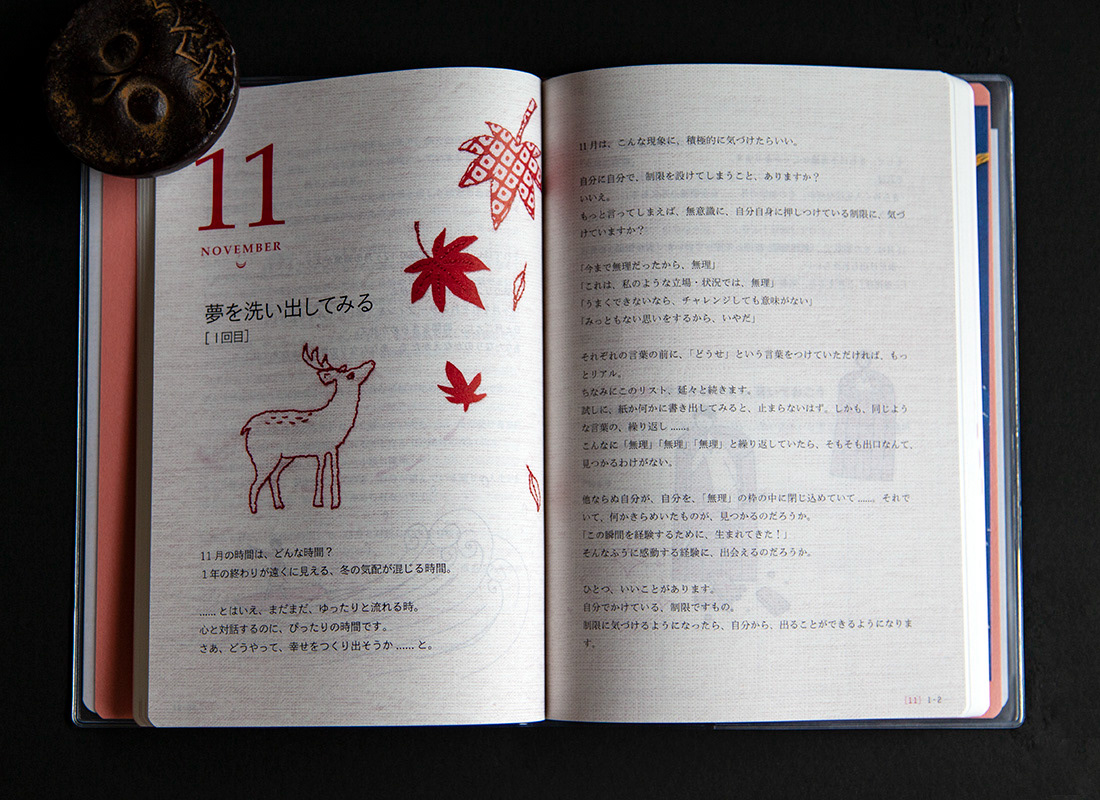 11
NOVEMBER
夢を洗い出してみる
[1回目]
11月の時間は、どんな時間？
1年の終わりが遠くに見える、冬の気配が混じる時間。
……とはいえ、まだまだ、ゆったりと流れる時。
心と対話するのに、ぴったりの時間です。
さあ、どうやって、幸せをつくり出そうか……と。
11月は、こんな現象に、積極的に気づけたらいい。
自分に自分で、制限を設けてしまうこと、ありますか？
いいえ。
もっと言ってしまえば、無意識に、自分自身に押しつけている制限に、気づ
けていますか？
「今まで無理だったから、無理」
「これは、私のような立場・状況では、無理」
「うまくできないなら、チャレンジしても意味がない」
「みっともない思いをするから、いやだ」
それぞれの言葉の前に、「どうせ」という言葉をつけていただければ、もっ
とリアル。
ちなみにこのリスト、延々と続きます。
試しに、紙か何かに書き出してみると、止まらないはず。しかも、同じよう
な言葉の、繰り返し……。
こんなに「無理」「無理」「無理」と繰り返していたら、そもそも出口なんて、
見つかるわけがない。
他ならぬ自分が、自分を、「無理」の枠の中に閉じ込めていて……。それで
いて、何かきらめいたものが、見つかるのだろうか。
「この瞬間を経験するために、生まれてきた！」
そんなふうに感動する経験に、出会えるのだろうか。
ひとつ、いいことがあります。
自分でかけている、制限ですもの。
制限に気づけるようになったら、自分から、出ることができるようになりま
す。
[11] 1-2